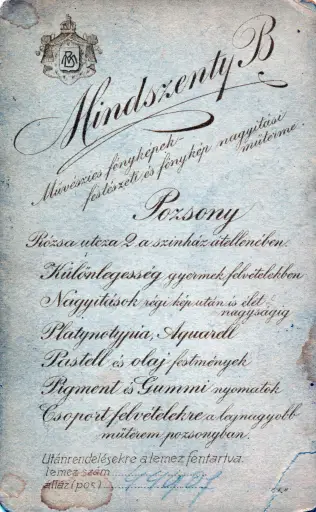 Mindszenty B
Művészies fényképek-
festészeti és fénykép nagyítási
műterme.
Pozsony
Rózsa utcza 2 a szinház átellenében.
Különlegesség gyermek felvételekben
Nagyítások régi kép után is élet-
nagyságig
Platynotypia, Aquarell
Pastell és olaj festmények
Pigment és Gummi nyomatok
Csoport felvételekre a legnagyobb
műterem pozsonyban.
Utánrendelésekre a lemez fentartva.
lemez szám